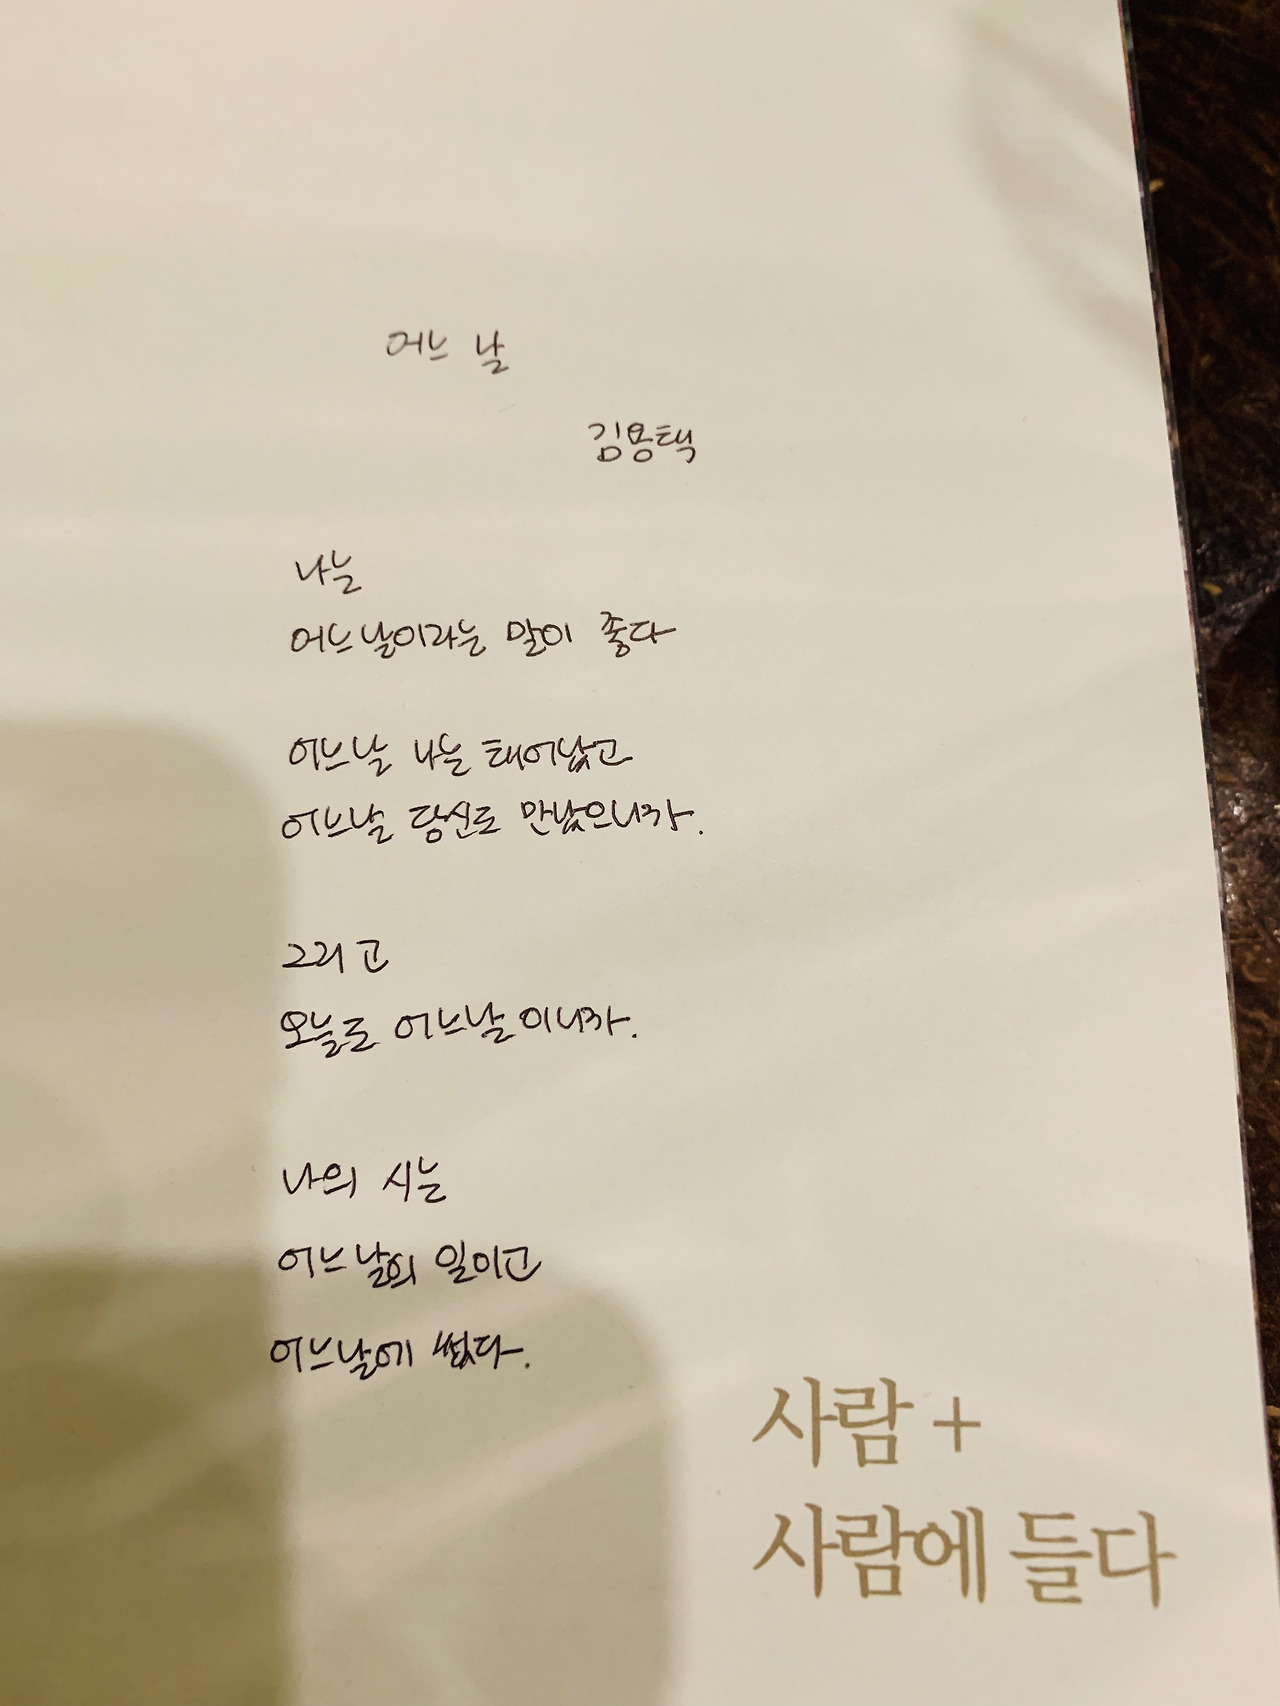 어느 날
김용택
나는
어느날이라는 말이 좋다
어느날 나는 태어났고
어느날 당신도 만났으니까.
그리고
오늘도 어느날이니까.
나의 시는
어느날의 일이고
어느날에 썼다.
사람 +
사람에 들다